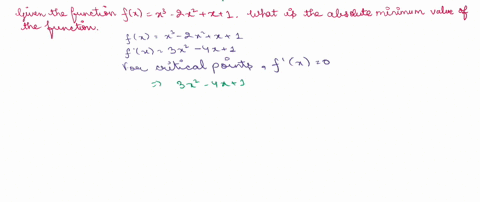 Given the function f(x) = x³ - 2x² + x + 1. What is the absolute minimum value of
the function.
f(x) = x³ - 2x² + x + 1
f'(x) = 3x² - 4x + 1
For critical points, f'(x) = 0
⇒ 3x² - 4x + 1